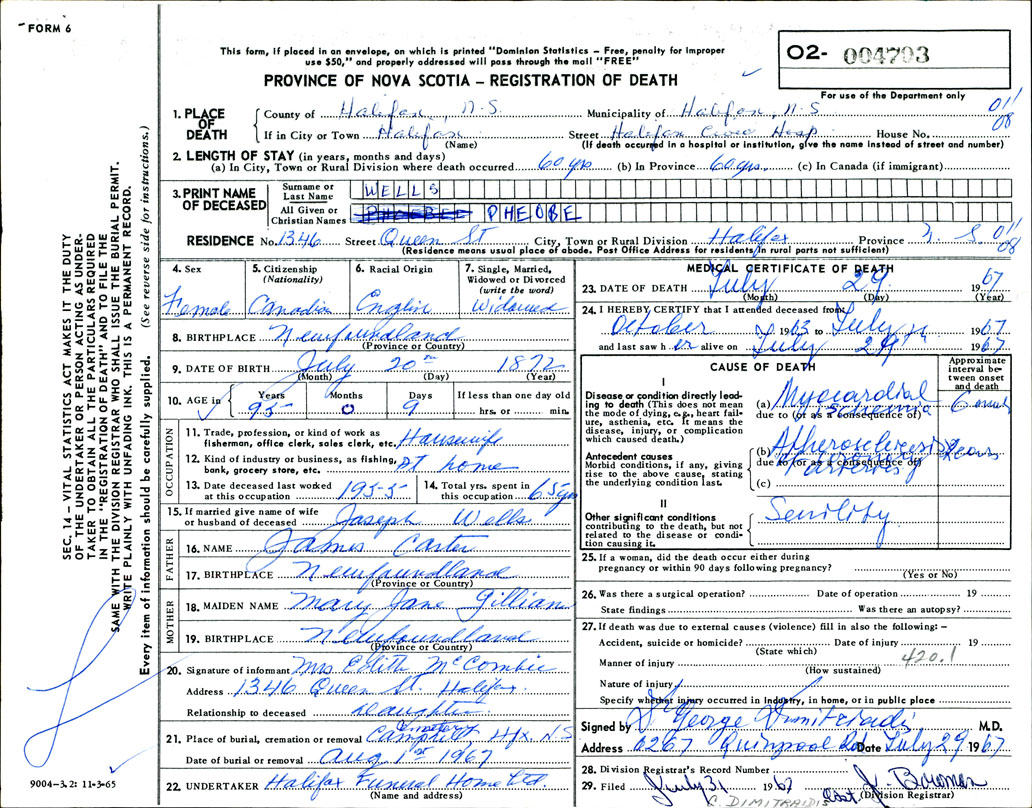 FORM 6
This form, if placed in an envelope, on which is printed "Dominion Statistics – Free, penalty for improper
use $50," and properly addressed will pass through the mail "FREE"
PROVINCE OF NOVA SCOTIA – REGISTRATION OF DEATH
O2- 004793
For use of the Department only
1. PLACE OF DEATH
County of Halifax, N-S Municipality of Halifax, N-S 011
If in City or Town Halifax Street Halifax Civic Hosp House No. 08
(Name) (If death occurred in a hospital or institution, give the name instead of street and number)
2. LENGTH OF STAY (in years, months and days)
(a) In City, Town or Rural Division where death occurred 60 yrs (b) In Province 60 yrs. (c) In Canada (if immigrant)
3. PRINT NAME OF DECEASED
Surname or Last Name WELLS
All Given or Christian Names PHEOBE
RESIDENCE No. 1346 Street Queen St City, Town or Rural Division Halifax Province N. S 011
(Residence means usual place of abode. Post Office Address for residents in rural parts not sufficient) 08
4. Sex
Female
5. Citizenship
(Nationality)
Canadian
6. Racial Origin
English
7. Single, Married,
Widowed or Divorced
(write the word)
Widowed
8. BIRTHPLACE Newfoundland
(Province or Country)
9. DATE OF BIRTH July 20 1872
(Month) (Day) (Year)
10. AGE in Years Months Days If less than one day old
95 0 9 hrs. or min.
OCCUPATION
11. Trade, profession, or kind of work as
fisherman, office clerk, sales clerk, etc. Housewife
12. Kind of industry or business, as fishing,
bank, grocery store, etc. At home
13. Date deceased last worked
at this occupation 1955
14. Total yrs. spent in
this occupation 65 yrs
15. If married give name of wife
or husband of deceased Joseph Wells
FATHER
16. NAME James Carter
17. BIRTHPLACE Newfoundland
(Province or Country)
MOTHER
18. MAIDEN NAME Mary Jane Gillian
19. BIRTHPLACE Newfoundland
(Province or Country)
20. Signature of informant Mrs Edith McCombie
Address 1346 Queen St. Halifax.
Relationship to deceased Daughter
21. Place of burial, cremation or removal Camphill Cemetery Hfx. NS
Date of burial or removal Aug 1st 1967
22. UNDERTAKER Halifax Funeral Home Ltd.
(Name and address)
MEDICAL CERTIFICATE OF DEATH
23. DATE OF DEATH July 29 1967
(Month) (Day) (Year)
24. I HEREBY CERTIFY that I attended deceased from
October 1963 to July 1967
and last saw her alive on July 29 1967
CAUSE OF DEATH
Approximate
interval be-
tween onset
and death
I
Disease or condition directly lead-
ing to death (This does not mean
the mode of dying, e.g., heart fail-
ure, asthenia, etc. It means the
disease, injury, or complication
which caused death.)
(a) Myocardial
ischemia
due to (or as a consequence of)
Antecedent causes
Morbid conditions, if any, giving
rise to the above cause, stating
the underlying condition last.
(b)
due to (or as a consequence of)
(c)
II
Other significant conditions
contributing to the death, but not
related to the disease or condi-
tion causing it.
Senility
25. If a woman, did the death occur either during
pregnancy or within 90 days following pregnancy?
(Yes or No)
26. Was there a surgical operation? Date of operation 19
State findings Was there an autopsy?
27. If death was due to external causes (violence) fill in also the following: –
Accident, suicide or homicide? Date of injury 19
(State which)
Manner of injury 420.1
(How sustained)
Nature of injury
Specify whether injury occurred in industry, in home, or in public place
Signed by George M.D.
Address 6267 Quinpool Rd Date July 29 1967
28. Division Registrar's Record Number
29. Filed July 31 1967
(Division Registrar)
C. DIMITRAIDIS
SEC. 14 – VITAL STATISTICS ACT MAKES IT THE DUTY
OF THE UNDERTAKER OR PERSON ACTING AS UNDER-
TAKER TO OBTAIN ALL THE PARTICULARS REQUIRED
IN THE "REGISTRATION OF DEATH" AND TO FILE THE
SAME WITH THE DIVISION REGISTRAR WHO SHALL ISSUE THE BURIAL PERMIT.
WRITE PLAINLY WITH UNFADING INK. THIS IS A PERMANENT RECORD.
Every item of information should be carefully supplied. (See reverse side for instructions.)
9004–3.2: 11-3-65